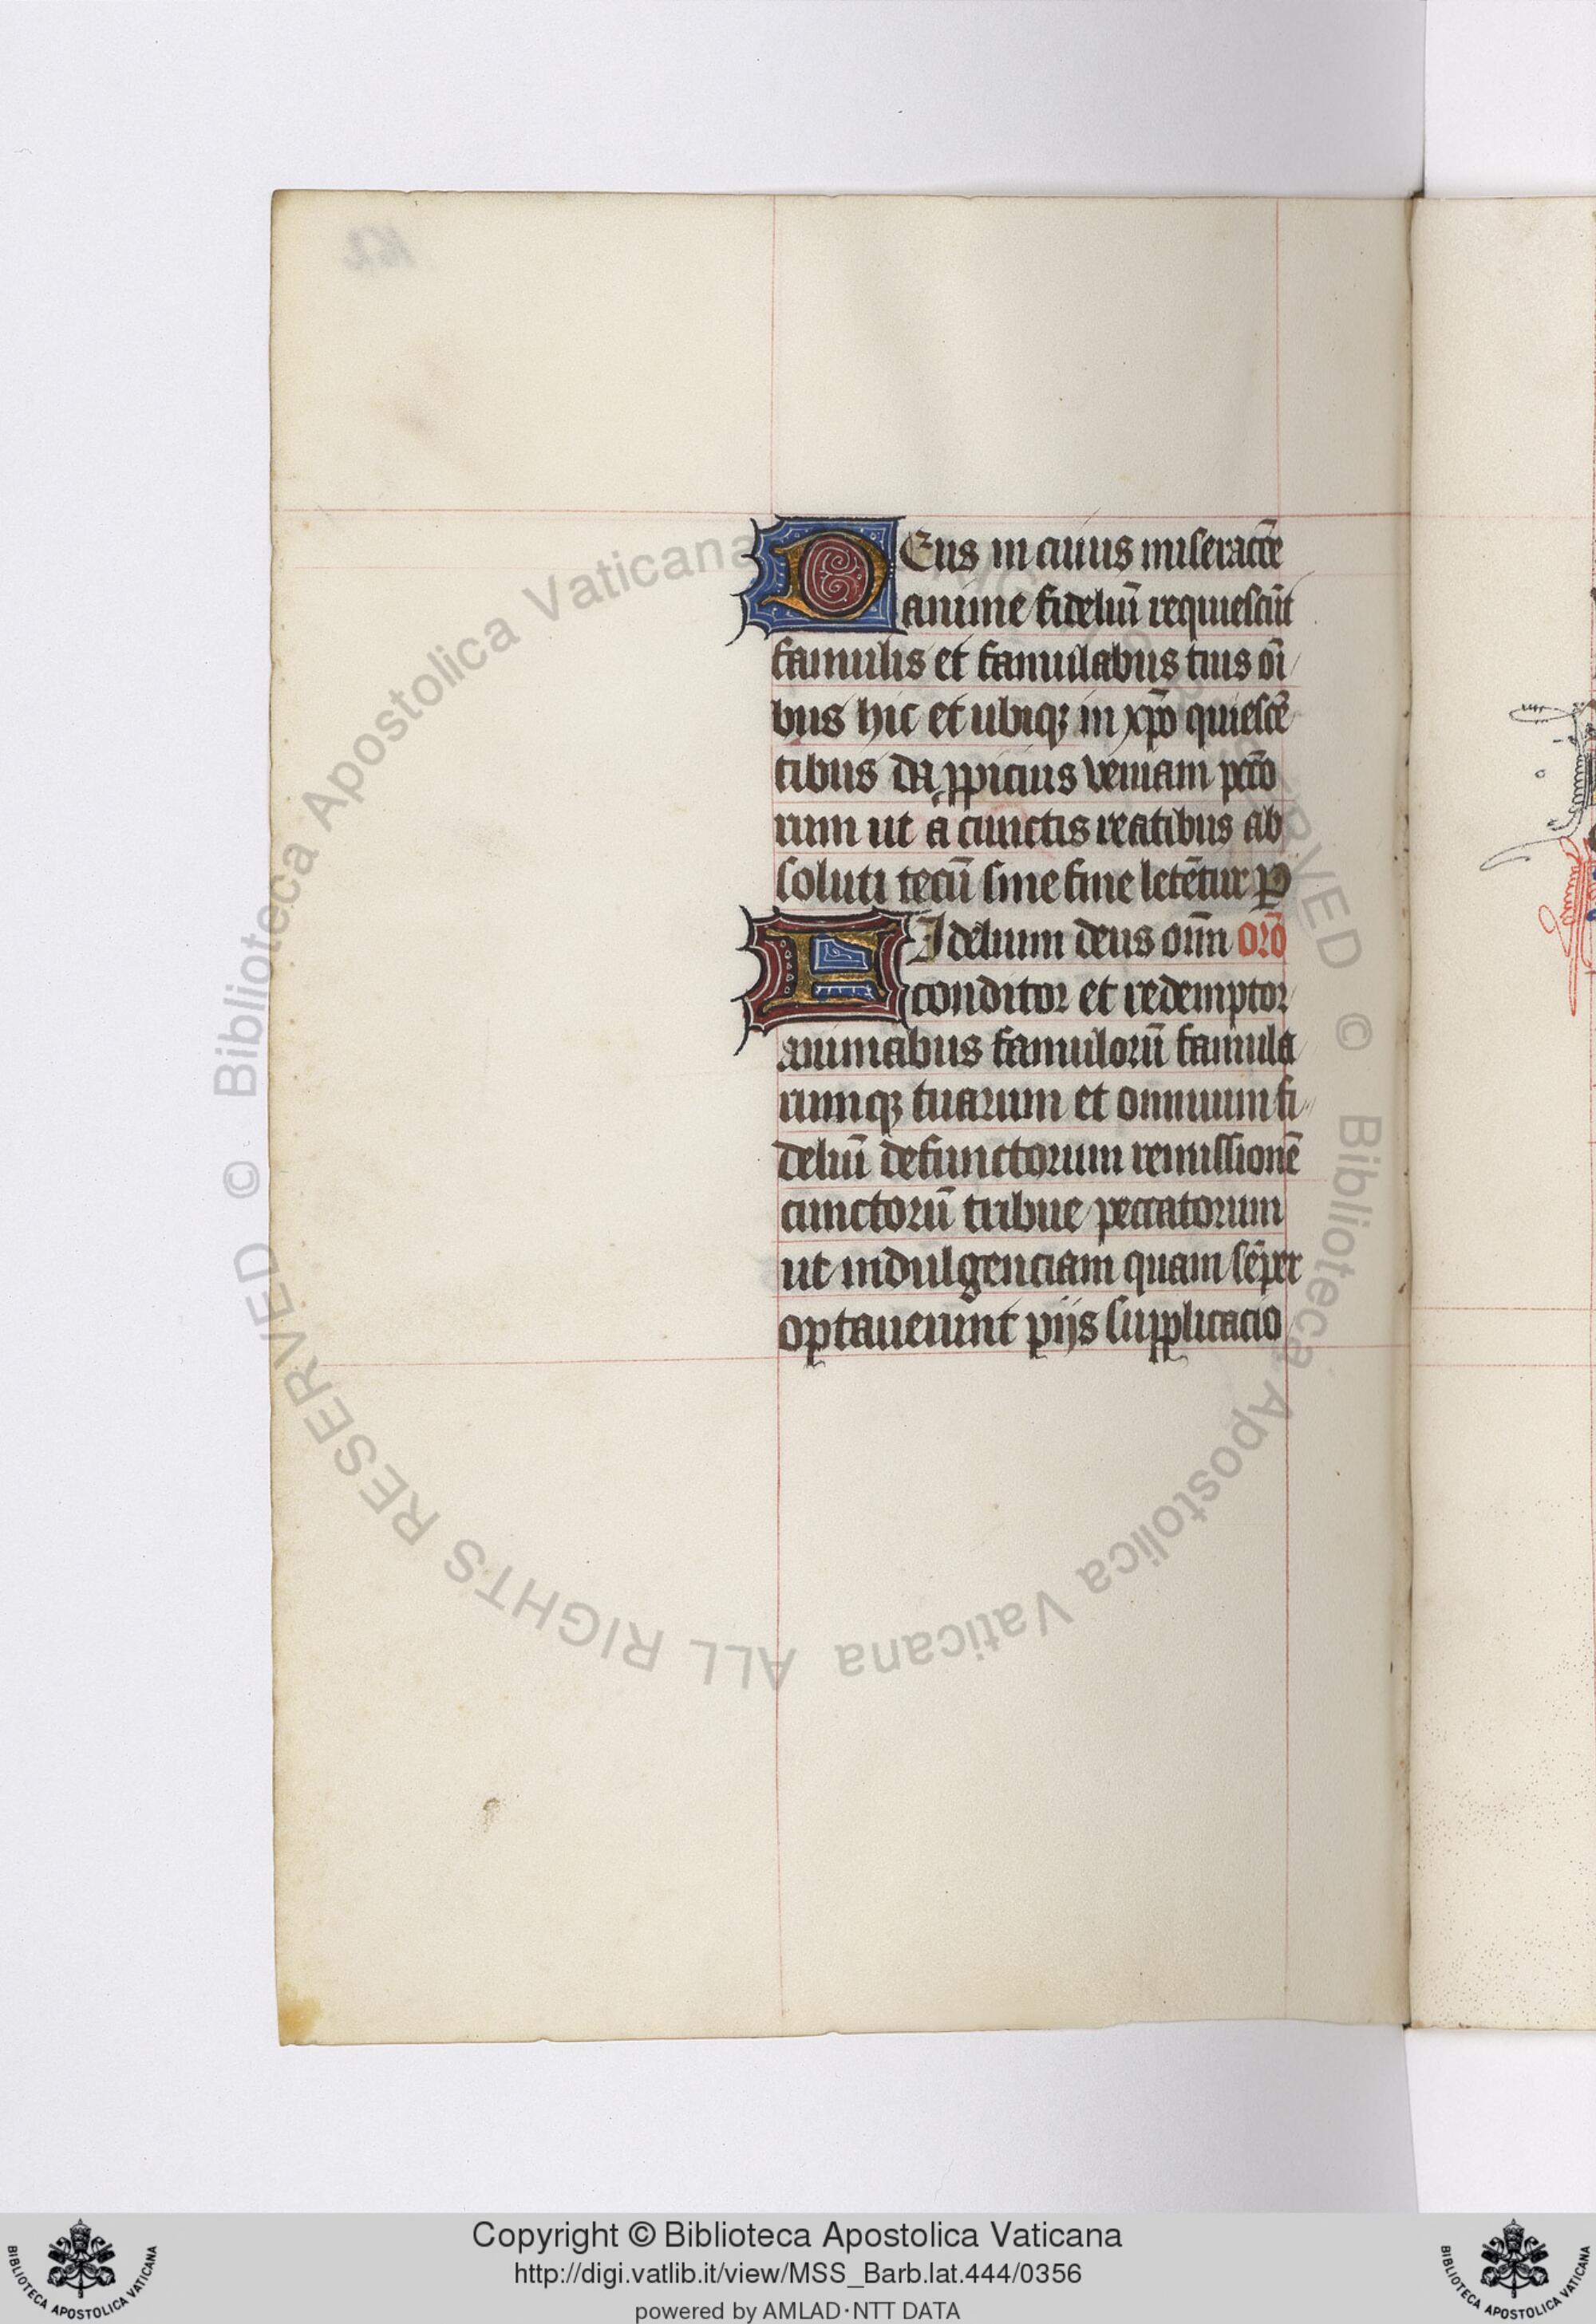 DEus in cuius miserac̄ōe
anime fideliū requiescūt
famulis et famulabus tuis om̄i
bus hic et ubiqꝫ in xp̄o quiescē
tibus da ꝓpicius veniam pcc̄o
rum ut a cunctis reatibus ab
soluti tecū sine fine letētur ꝑ
FIdelium deus om̄n or̄o
conditor et redemptor
animabus famulorū famula
rumqꝫ tuarum et omnium fi
deliū defunctorum remissionē
cunctorū tribue peccatorum
ut indulgenciam quam sēper
optauerunt pijs supplicacio
© Biblioteca Apostolica Vaticana
ALL RIGHTS RESERVED © Biblioteca Apostolica Vaticana
Copyright © Biblioteca Apostolica Vaticana
http://digi.vatlib.it/view/MSS_Barb.lat.444/0356
powered by AMLAD·NTT DATA
BIBLIOTECA APOSTOLICA VATICANA
BIBLIOTECA APOSTOLICA VATICANA